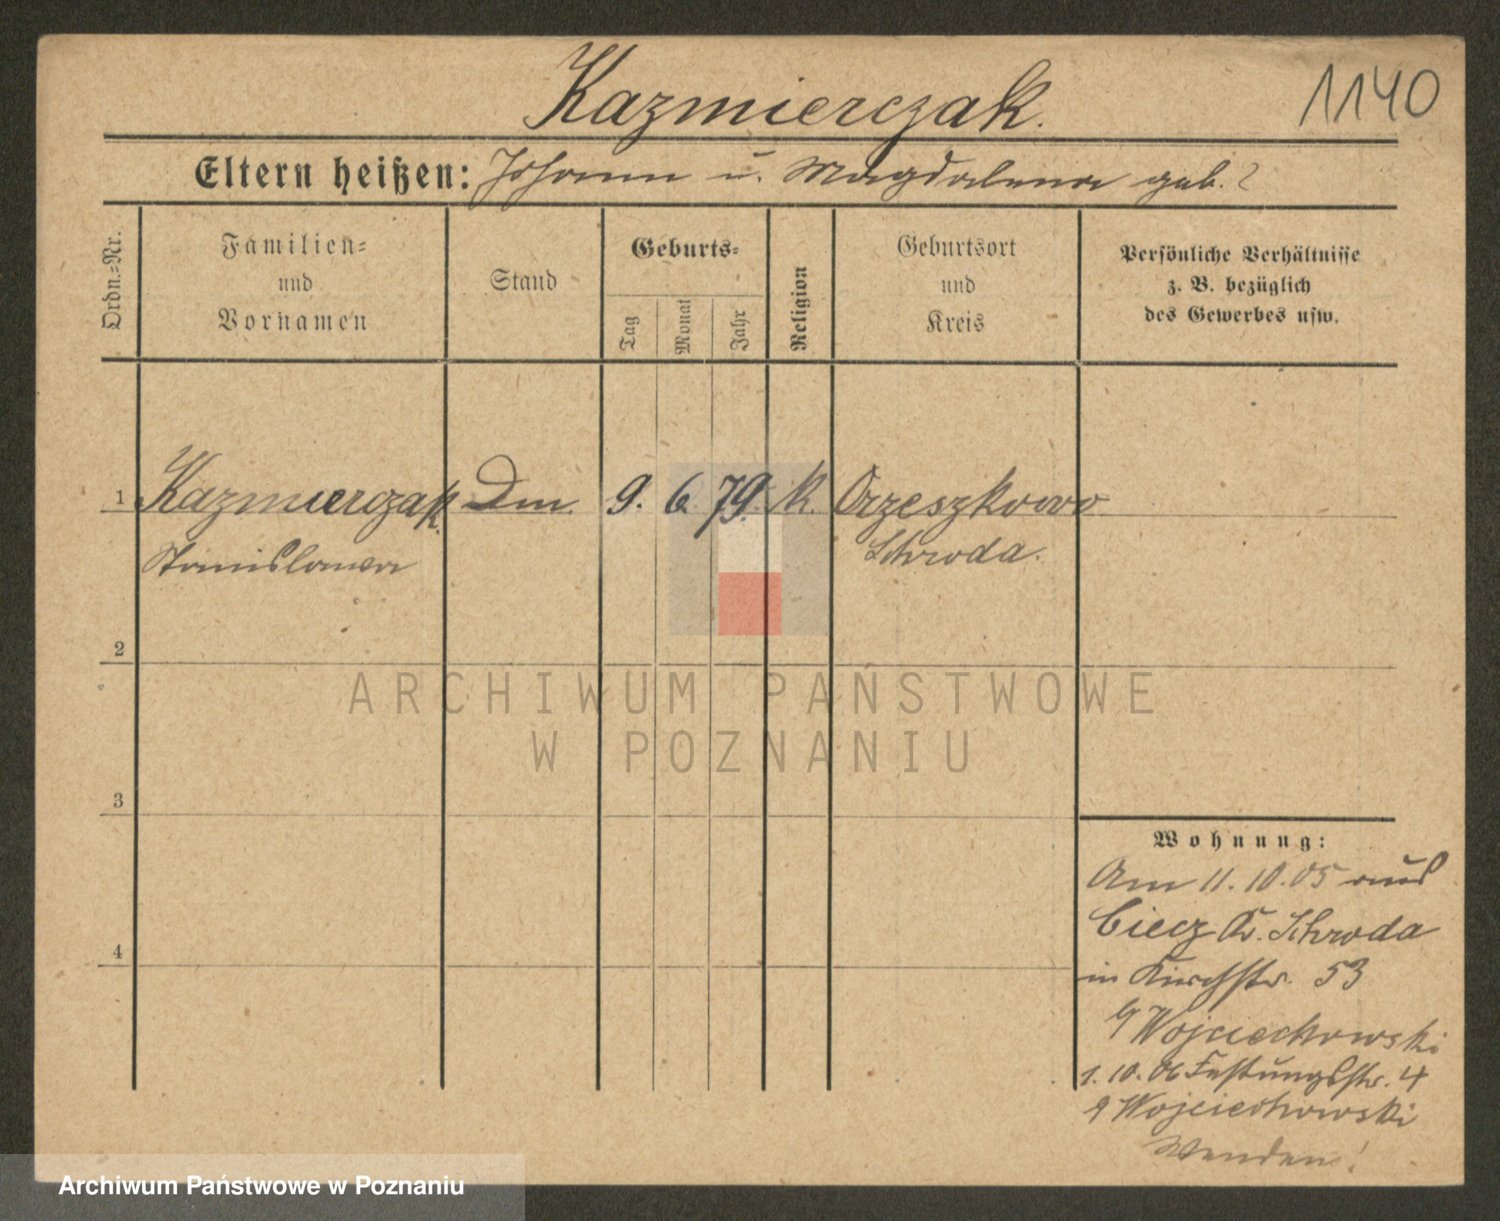 Kazmierczak.
1140
Eltern heißen: Johann u. Magdalena geb. ?
Ordn.=Nr.
Familien=
und
Vornamen
Stand
Geburts=
Tag
Monat
Jahr
Religion
Geburtsort
und
Kreis
Persönliche Verhältnisse
z. B. bezüglich
des Gewerbes usw.
1 Kazmierczak Dm. 9. 6. 79. k. Orzeszkowo
Stanislawa Schroda.
2
ARCHIWUM PAŃSTWOWE
W POZNANIU
3
Wohnung:
Am 11.10.05 aus
Ciecz Kr. Schroda
in Kirchstr. 53
Wojciechowski
4
1.10.06 Festungsstr. 4
Wojciechowski
Wenden!
Archiwum Państwowe w Poznaniu